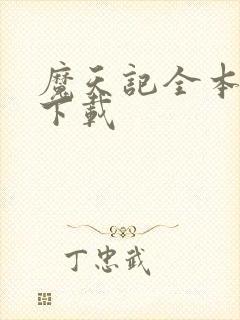 魔天記全本
下載
丁忠武